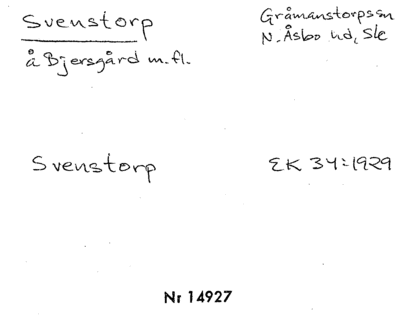 Svenstorp
Gråmanstorps sn
å Bjersgård m.fl.
N. Åsbo hd, Sk
Svenstorp
EK 34:1929
Nr 14927